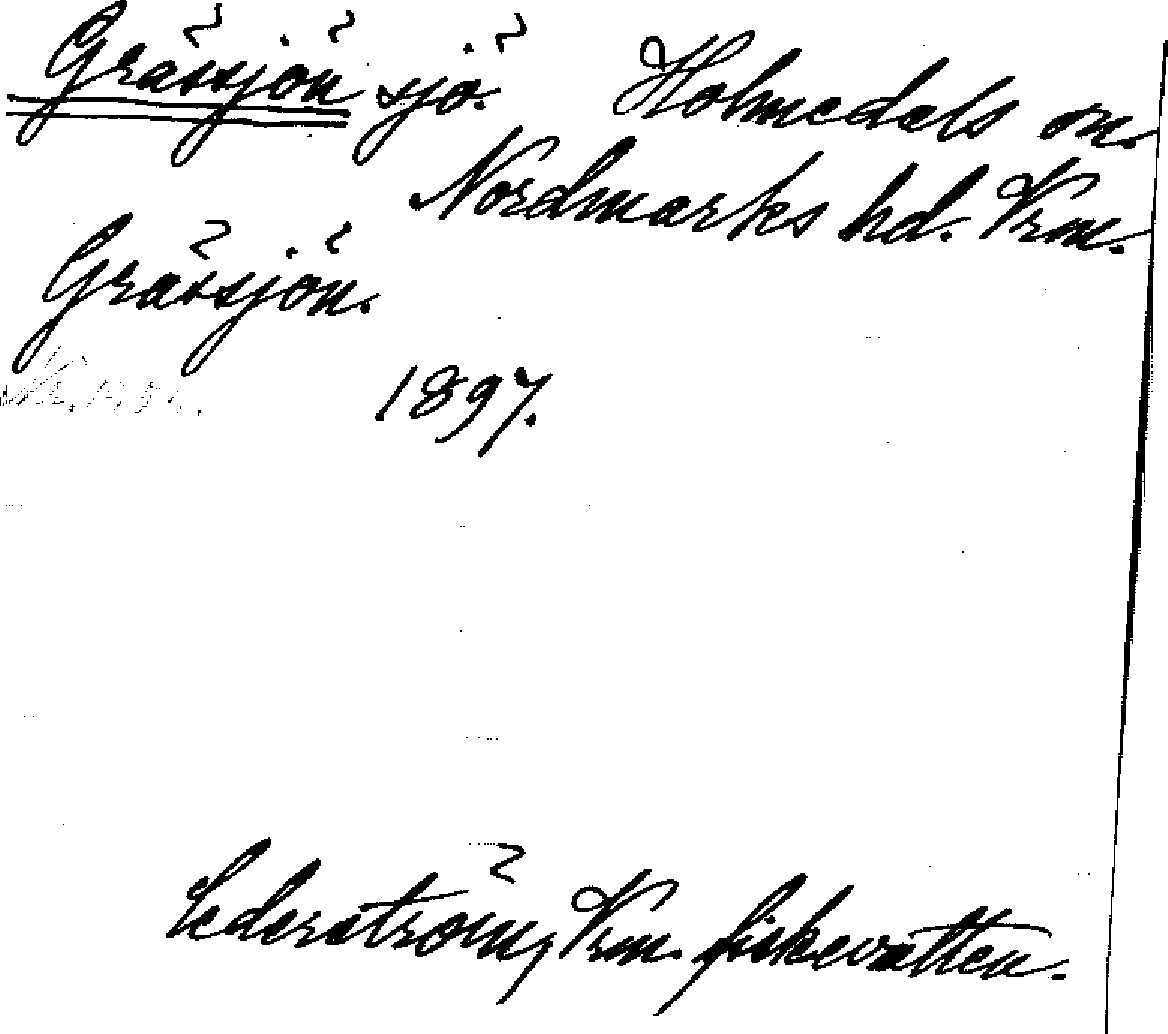 Grässjön sjö. Holmedals sn.
Nordmarks hd. Vrm.
Grässjön.
1897.
Cederström, Vrm. fiskevatten.